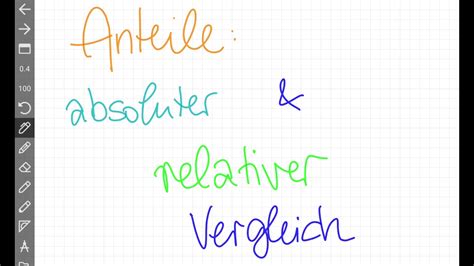 Anteile:
absoluter &
relativer
Vergleich
0.4
100
A